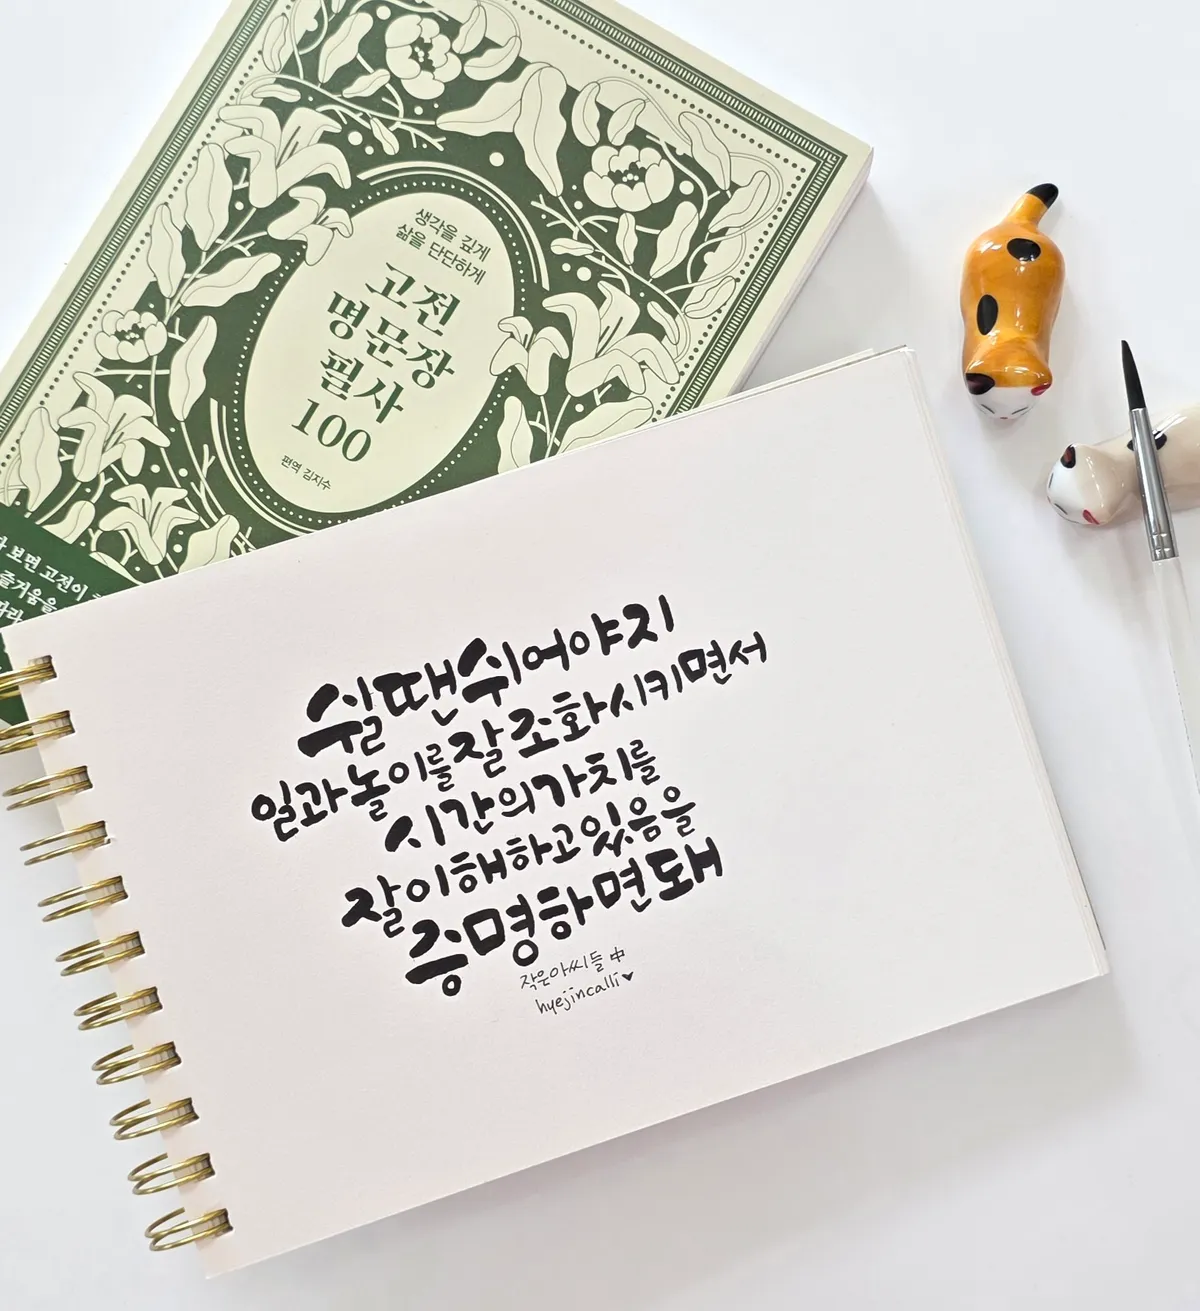 생각을 깊게
삶을 단단하게
고전
명문장
필사
100
편역 김지수
보면 고전이
즐거움을
따라
쉴 땐 쉬어야지
일과 놀이를 잘 조화시키면서
시간의 가치를
잘 이해하고 있음을
증명하면 돼
작은아씨들 中
hyejincalli♥